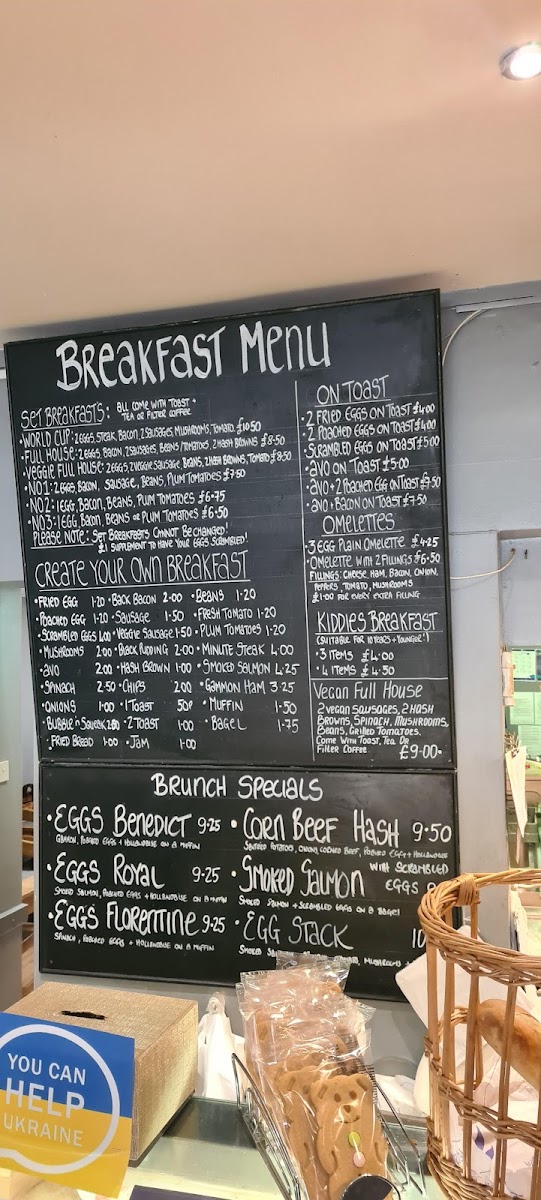 BREAKFAST MENU
SET BREAKFAST'S: ALL COME WITH TOAST +
TEA OR FILTER COFFEE
• WORLD CUP: 2 EGGS, STEAK, BACON, 2 SAUSAGES, MUSHROOMS, TOMATO. £10.50
• FULL HOUSE: 2 EGGS, BACON, 2 SAUSAGES, BEANS/TOMATOES, 2 HASH BROWNS £8.50
• VEGGIE FULL HOUSE: 2 EGGS, 2 VEGGIE SAUSAGE, BEANS, 2 HASH BROWNS, TOMATO £8.50
• NO1: 2 EGGS, BACON, SAUSAGE, BEANS, PLUM TOMATOES £7.50
• NO2: 1 EGG, BACON, BEANS, PLUM TOMATOES £6.75
• NO3: 1 EGG, BACON, BEANS OR PLUM TOMATOES £6.50
PLEASE NOTE: SET BREAKFASTS CANNOT BE CHANGED!
£1 SUPPLEMENT TO HAVE YOUR EGGS SCRAMBLED!
CREATE YOUR OWN BREAKFAST
• FRIED EGG 1.20 • BACK BACON 2.00 • BEANS 1.20
• POACHED EGG 1.20 • SAUSAGE 1.50 • FRESH TOMATO 1.20
• SCRAMBLED EGGS 4.00 • VEGGIE SAUSAGE 1.50 • PLUM TOMATOES 1.20
• MUSHROOMS 2.00 • BLACK PUDDING 2.00 • MINUTE STEAK 4.00
• AVO 2.00 • HASH BROWN 1.00 • SMOKED SALMON 4.25
• SPINACH 2.50 • CHIPS 2.00 • GAMMON HAM 3.25
• ONIONS 1.00 • 1 TOAST 50P • MUFFIN 1.50
• BUBBLE N SQUEAK 2.50 • 2 TOAST 1.00 • BAGEL 1.75
• FRIED BREAD 1.00 • JAM 1.00
ON TOAST
• 2 FRIED EGGS ON TOAST £4.00
• 2 POACHED EGGS ON TOAST £4.00
• SCRAMBLED EGGS ON TOAST £5.00
• AVO ON TOAST £5.00
• AVO + 2 POACHED EGG ON TOAST £7.50
• AVO + BACON ON TOAST £7.50
OMELETTES
• 3 EGG PLAIN OMELETTE £4.25
• OMELETTE WITH 2 FILLINGS £6.50
FILLINGS: CHEESE, HAM, BACON, ONION,
PEPPERS, TOMATO, MUSHROOMS
£1.00 FOR EVERY EXTRA FILLING
KIDDIES BREAKFAST
(SUITABLE FOR 10 YEARS + YOUNGER!)
• 3 ITEMS £4.00
• 4 ITEMS £4.50
VEGAN FULL HOUSE
2 VEGAN SAUSAGES, 2 HASH
BROWNS, SPINACH, MUSHROOMS,
BEANS, GRILLED TOMATOES.
COME WITH TOAST, TEA OR
FILTER COFFEE £9.00
BRUNCH SPECIALS
• EGGS BENEDICT 9.25
GAMMON, POACHED EGGS + HOLLANDAISE ON A MUFFIN
• EGGS ROYAL 9.25
SMOKED SALMON, POACHED EGGS + HOLLANDAISE ON A MUFFIN
• EGGS FLORENTINE 9.25
SPINACH, POACHED EGGS + HOLLANDAISE ON A MUFFIN
• CORN BEEF HASH 9.50
SAUTEED POTATOES, ONION, CORNED BEEF, POACHED EGG + HOLLANDAISE
• SMOKED SALMON WITH SCRAMBLED
EGGS
SMOKED SALMON + SCRAMBLED EGGS ON A BAGEL
• EGG STACK 10
SMOKED MUSHROOMS +
YOU CAN
HELP
UKRAINE